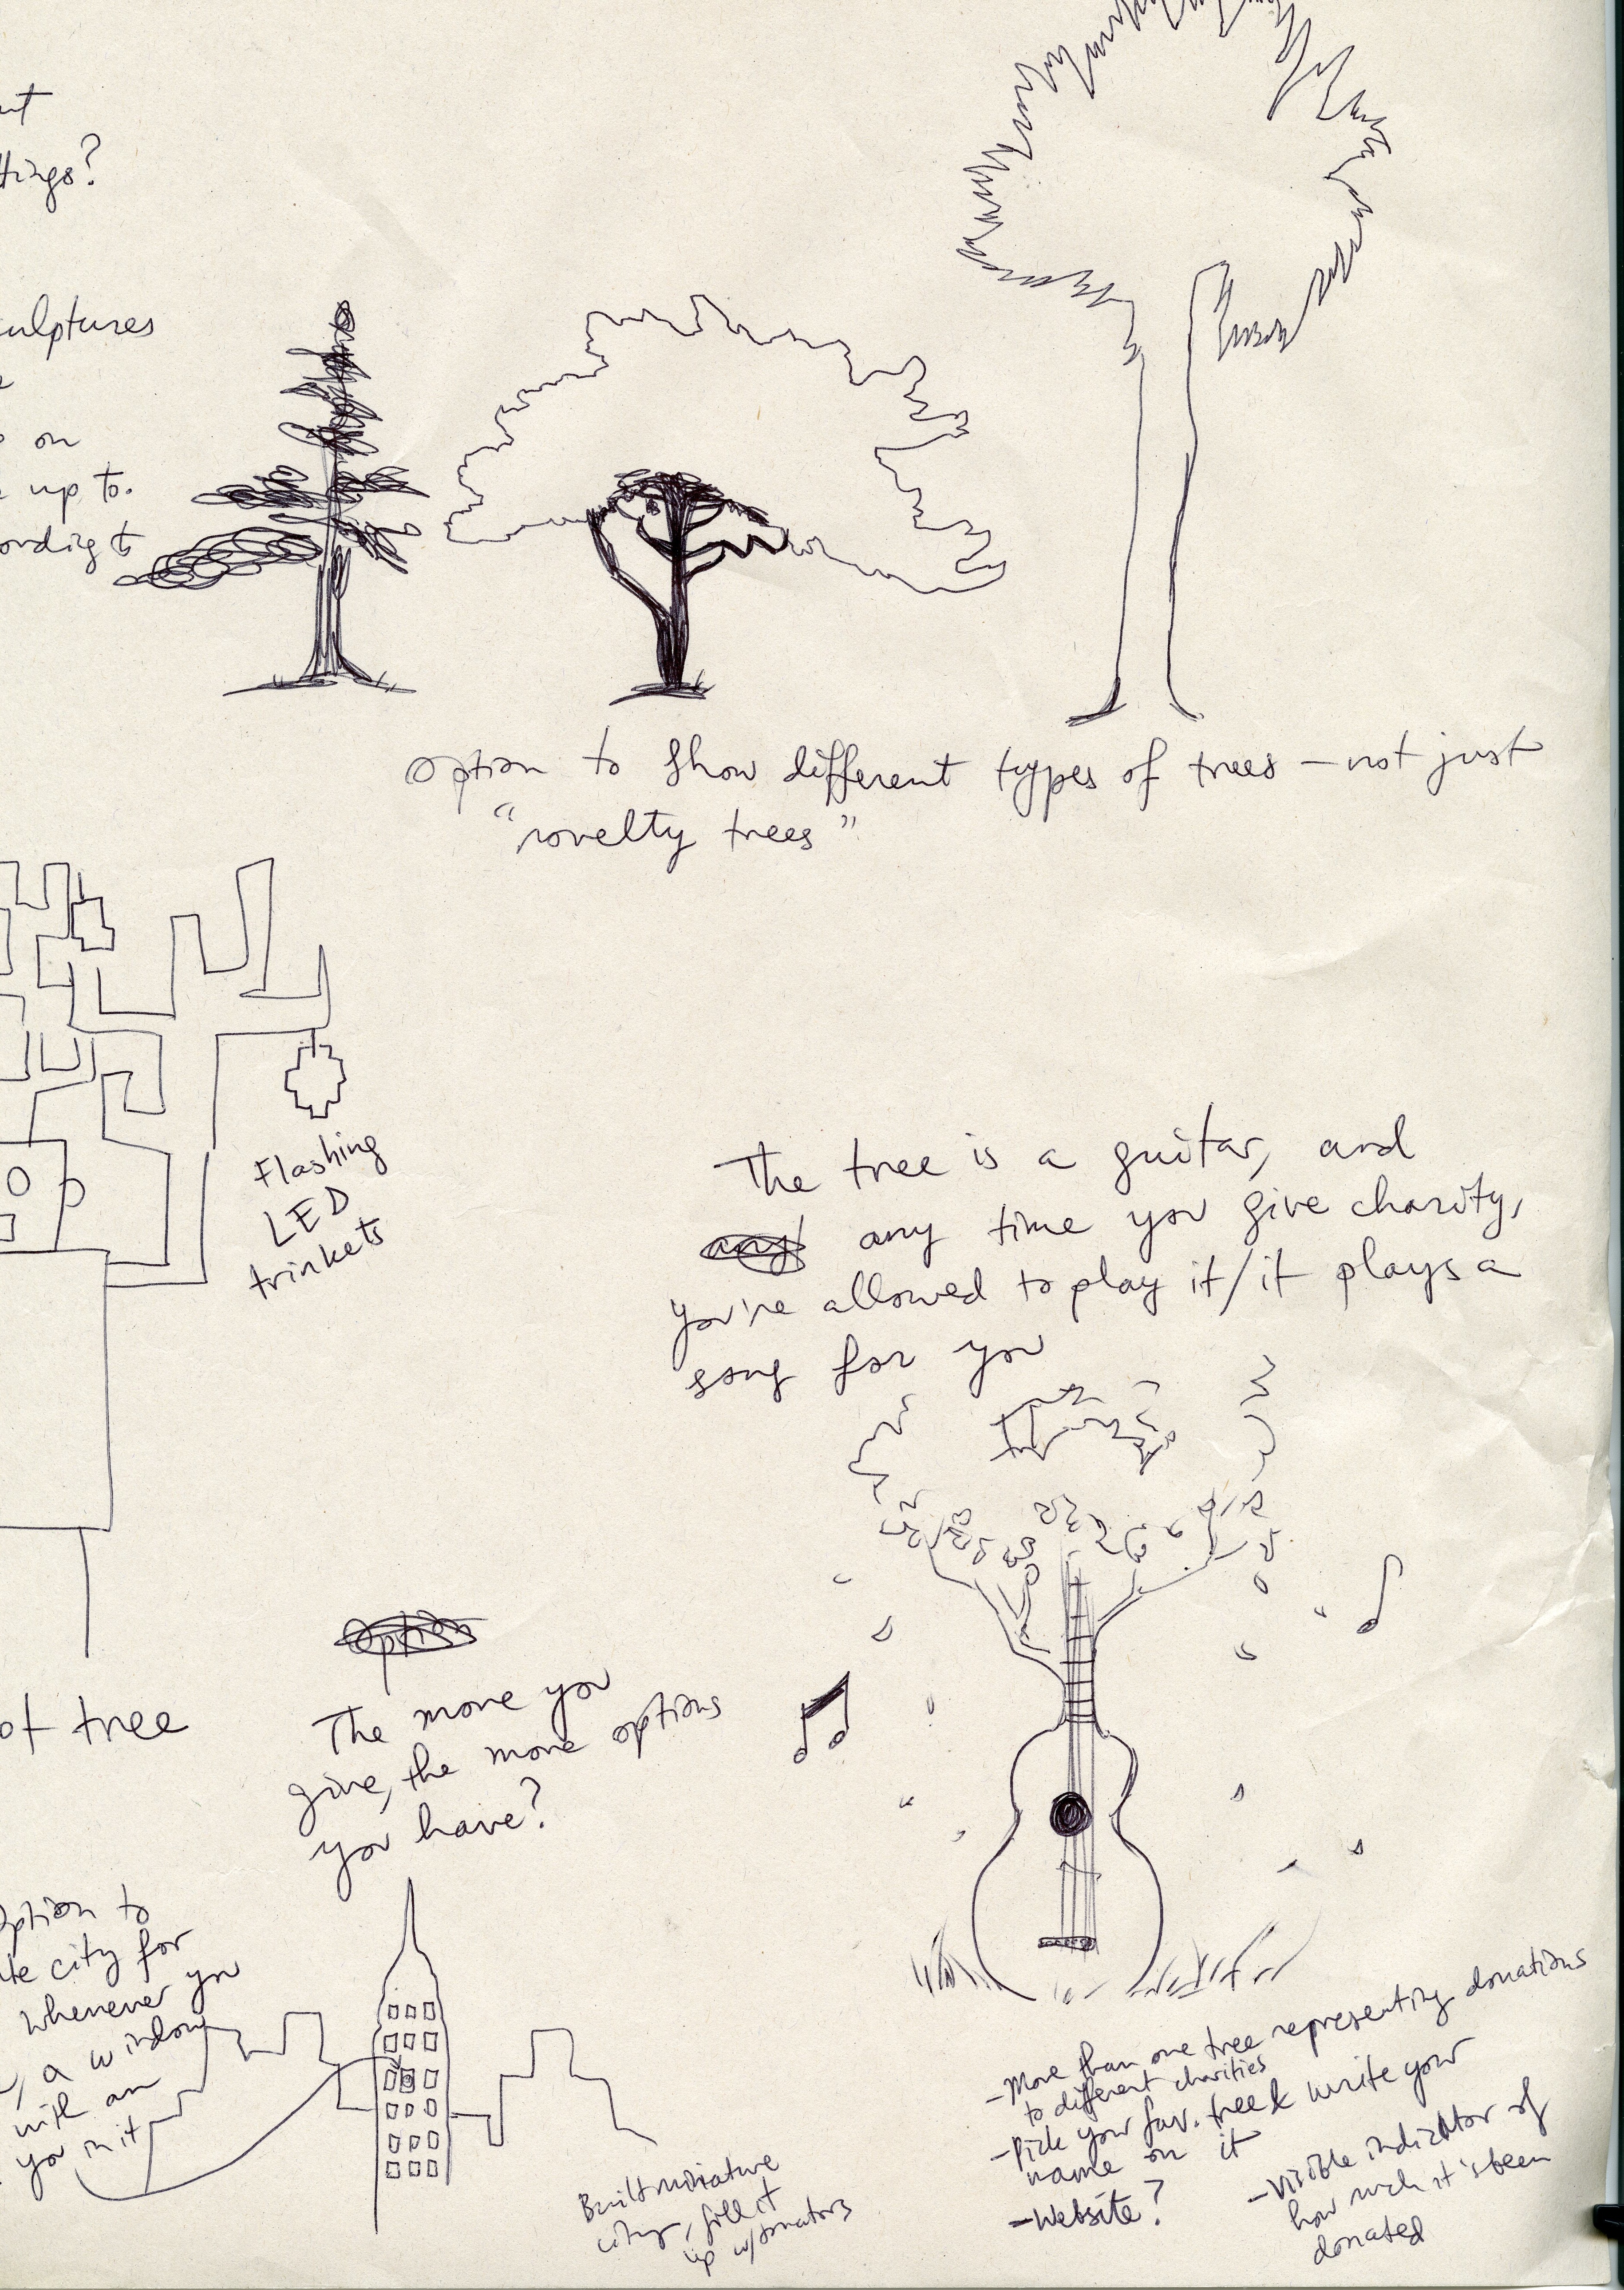 ut
ttings?
culptures
on
up to.
ording to
option to show different types of trees – not just
"novelty trees"
Flashing
LED
trinkets
The tree is a guitar, and
any any time you give charity,
you're allowed to play it/it plays a
song for you
of tree
Option
The more you
give, the more options
you have?
Option to
te city for
whenever you
, a window
with an
you in it
Built miniature
city, fill it
up w/donators
- More than one tree representing donations
to different charities
- Pick your fav. tree & write your
name on it
- Website?
- Visible indicator of
how much it's been
donated